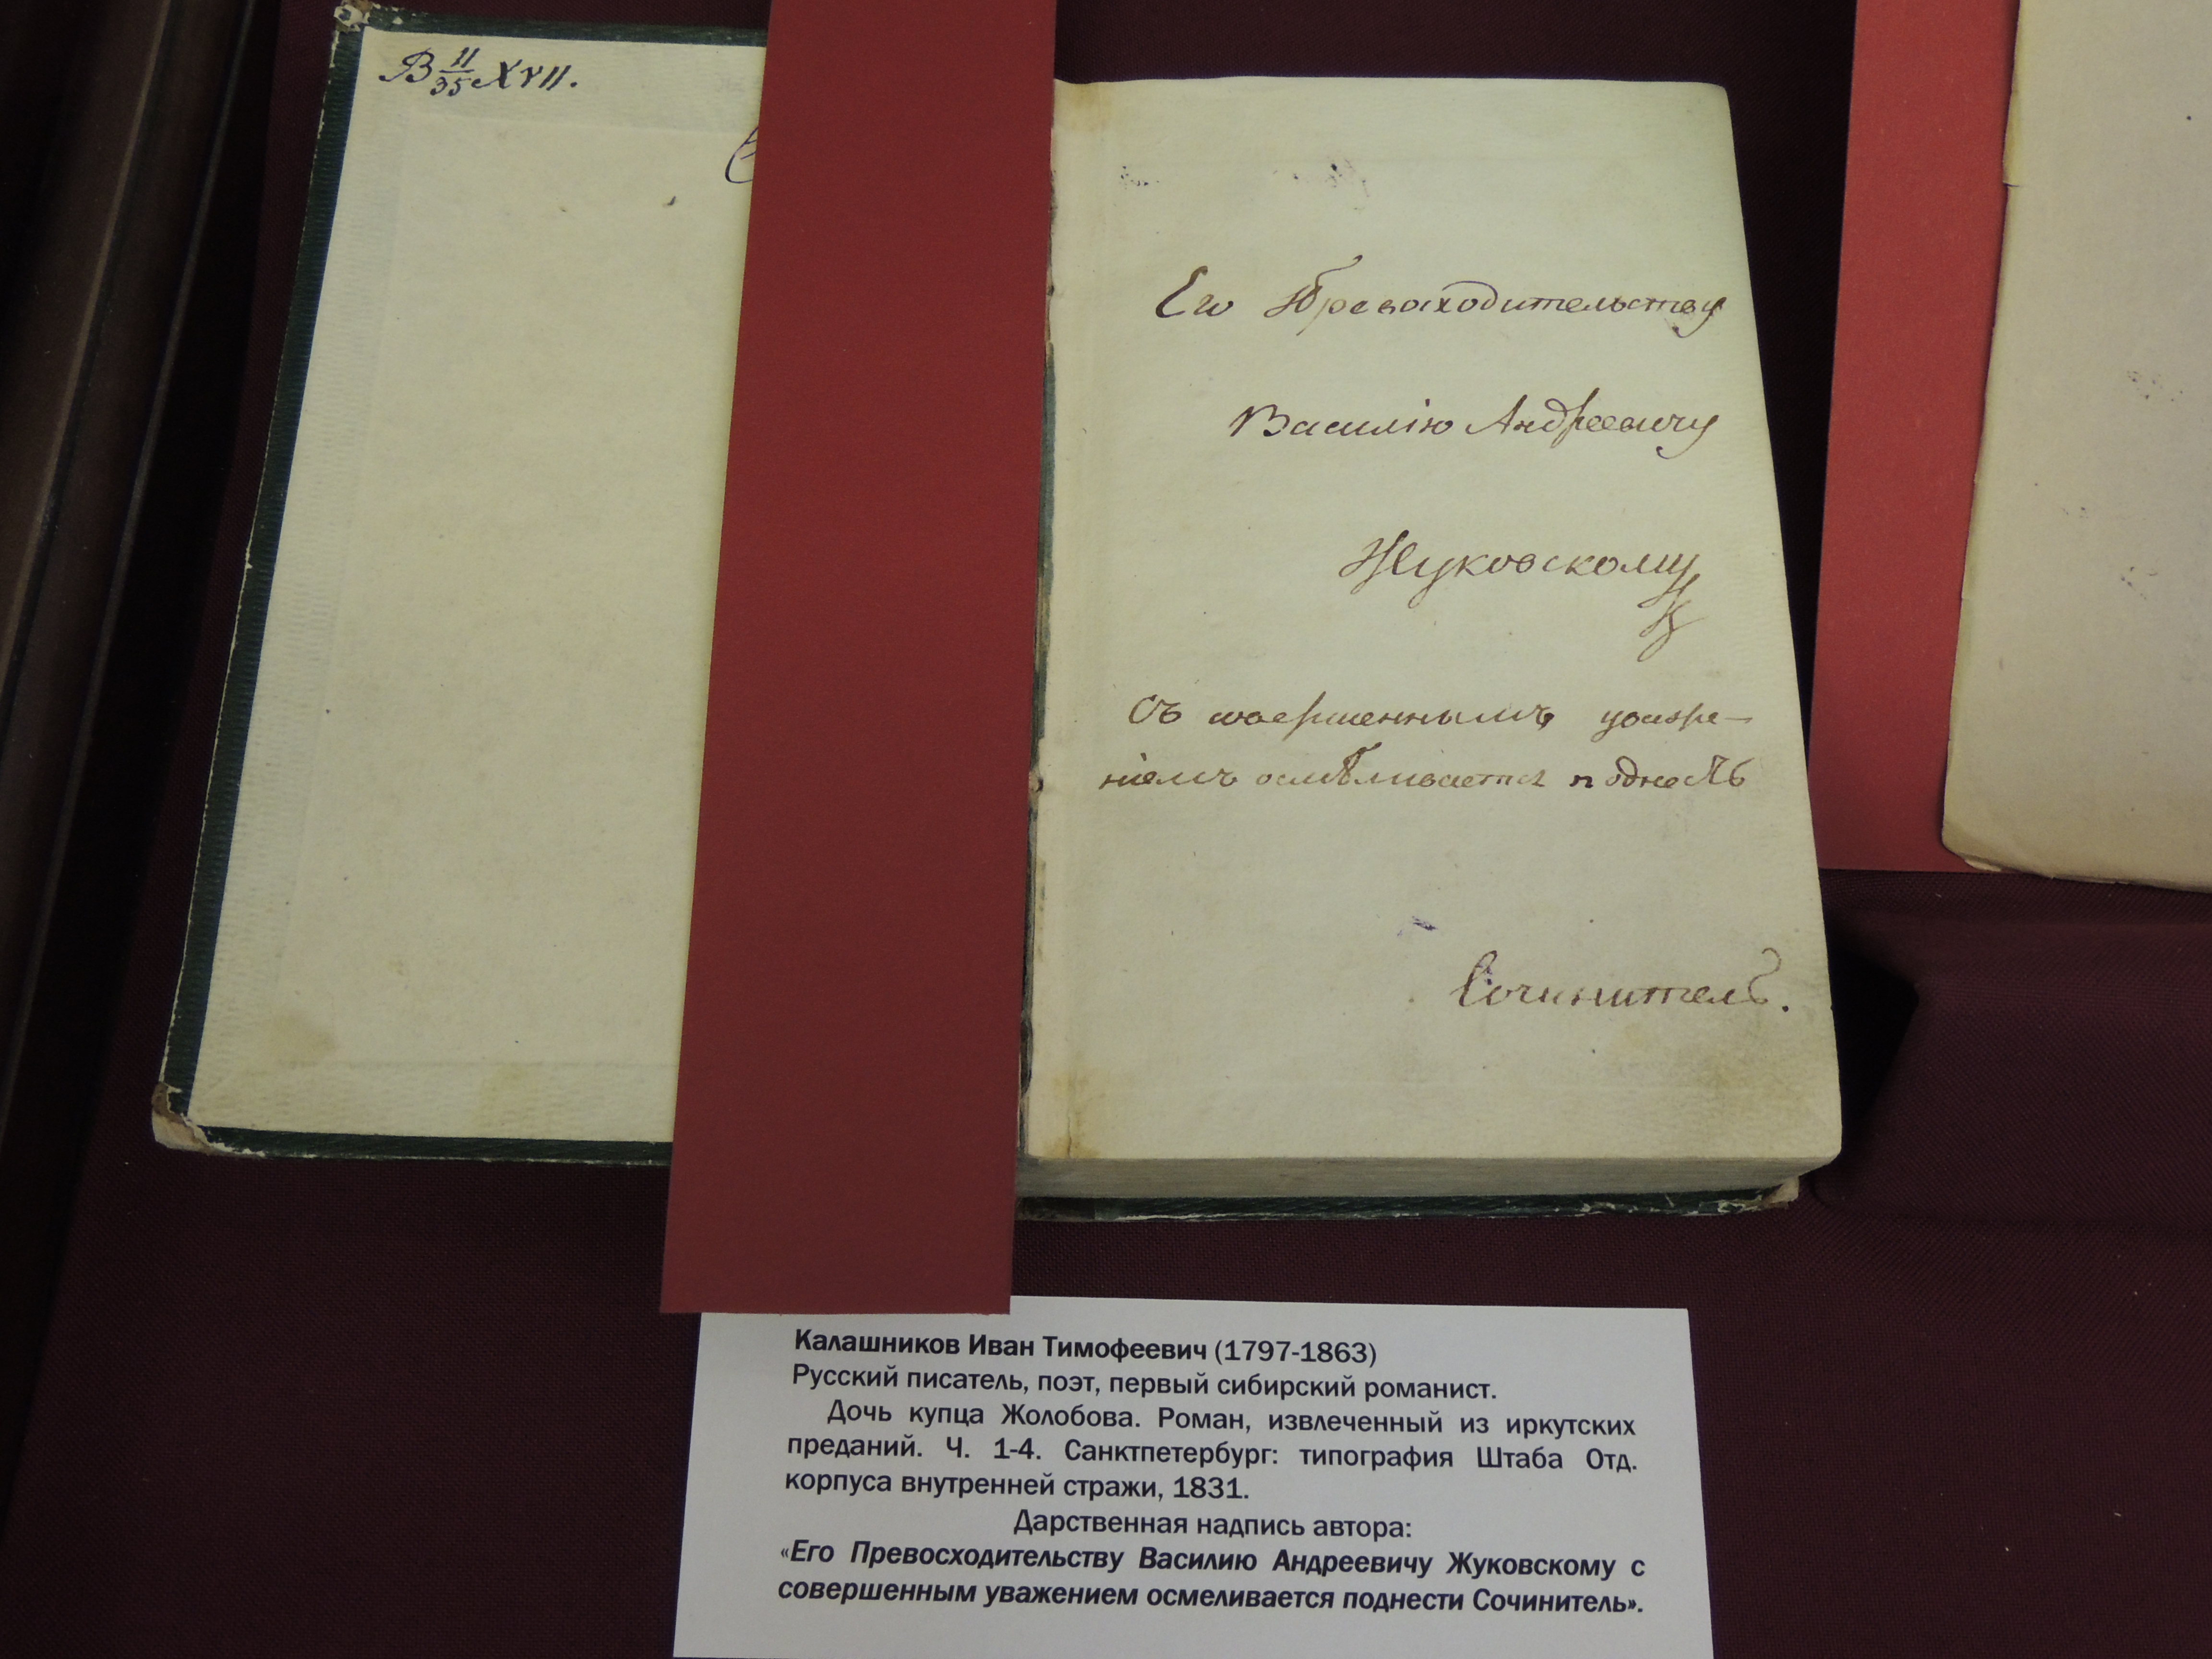 В 11/35 XVII.
Его Превосходительству
Василію Андреевичу
Жуковскому
Съ совершеннымъ уваже-
ніемъ осмѣливается поднесть
Сочинитель.
Калашников Иван Тимофеевич (1797-1863)
Русский писатель, поэт, первый сибирский романист.
Дочь купца Жолобова. Роман, извлеченный из иркутских
преданий. Ч. 1-4. Санктпетербург: типография Штаба Отд.
корпуса внутренней стражи, 1831.
Дарственная надпись автора:
«Его Превосходительству Василию Андреевичу Жуковскому с
совершенным уважением осмеливается поднести Сочинитель».